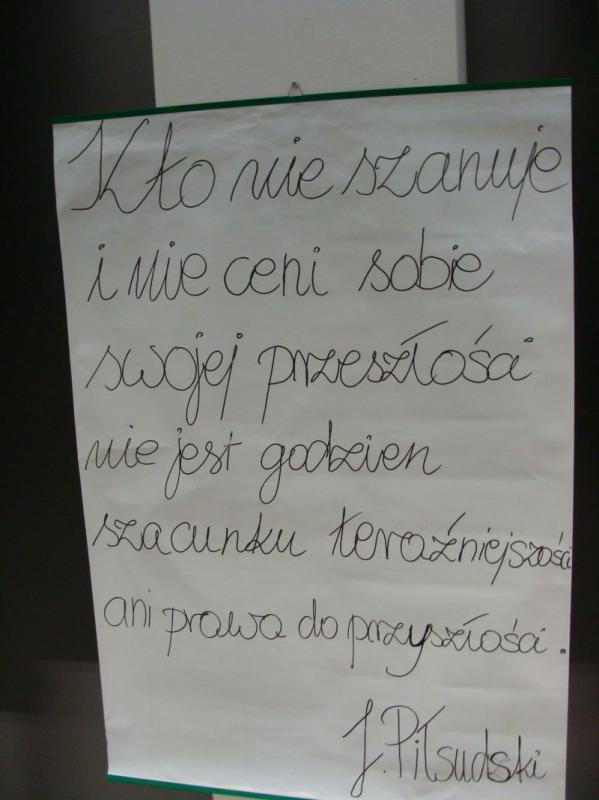 Kto nie szanuje
i nie ceni sobie
swojej przeszłości
nie jest godzien
szacunku teraźniejszości
ani prawa do przyszłości.
J. Piłsudski